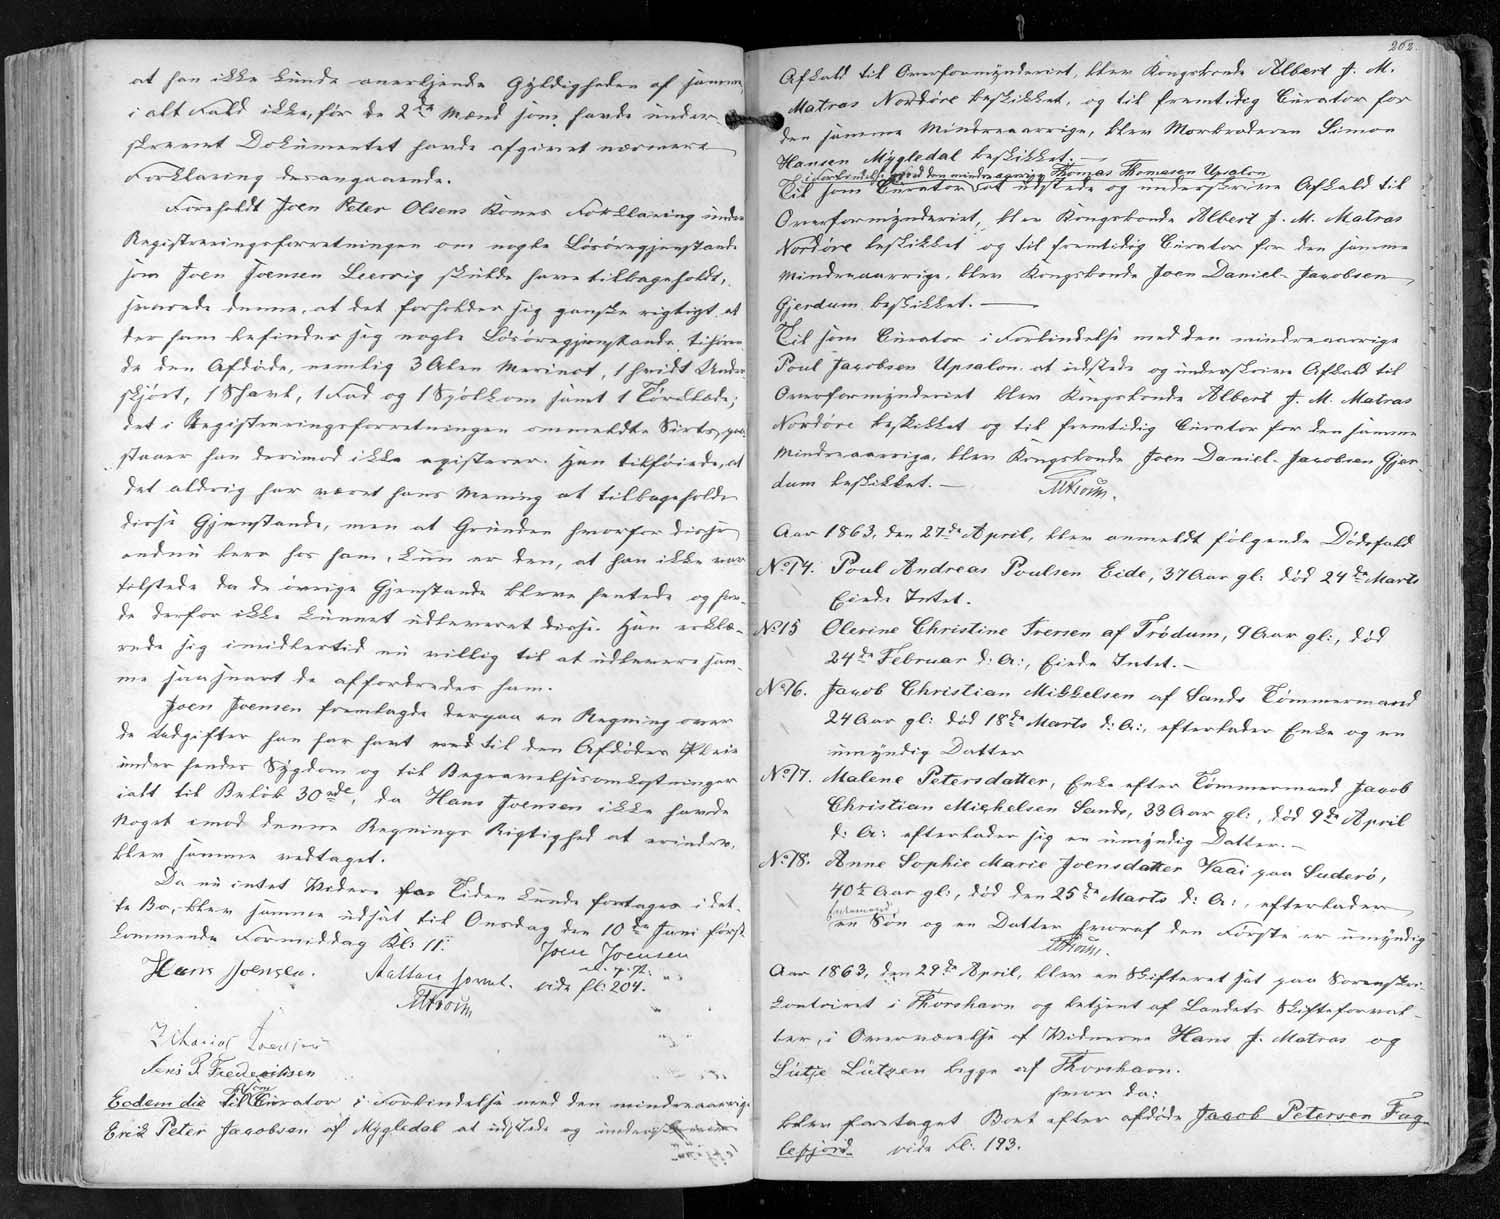 at han ikke kunde anerkjende Gyldigheden af samme,
i alt Fald ikke, før de 2de Mænd som havde under-
skrevet Dokumentet havde afgivet nærmere
Forklaring desangaaende.
Foreholdt Joen Peter Olsens Kones Forklaring under
Registreringsforretningen om nogle Løsøregjenstande
som Joen Joensen Leervig skulde have tilbageholdt,
svarede denne, at det forholder sig ganske rigtigt at
der ham befinder sig nogle Løsøregjenstande tilhøren-
de den Afdøde, nemlig 3 Alen Merinot, 1 hvidt Under-
skjørt, 1 Shavl, 1 Fad og 1 Spølkom samt 1 Tørklæde;
det i Registreringsforretningen ommeldte Sirts, paa-
staaer han derimod ikke existerer. Han tilføiede, at
det aldrig har været hans Mening at tilbageholde
disse Gjenstande, men at Grunden hvorfor disse
endnu bero hos ham, kun er den, at han ikke var
tilstede da de øvrige Gjenstande bleve hentede og hav-
de derfor ikke kunnet udleveret disse. Han erklæ-
rede sig imidlertid nu villig til at udlevere sam-
me saasnart de affordredes ham.
Joen Joensen fremlagde derpaa en Regning over
de Udgifter han har havt med til den Afdødes Pleie
under hendes Sygdom og til Begravelsesomkostninger
ialt til Beløb 30 rd, da Hans Joensen ikke havde
Noget imod denne Regnings Rigtighed at erindre,
blev samme vedtaget.
Da nu intet Videre for Tiden kunde foretages i det-
te Bo, blev samme udsat til Onsdag den 10de Juni først-
kommende Formiddag Kl: 11.
Hans Joensen. Joen Joensen
m. f. P.
vide fl: 204.
MKrohn
Jens P. Frederiksen
Eodem die Til som Curator i Forbindelse med den mindreaarige
Erik Peter Jacobsen af Mygledal at udstede og underskrive
202.
Afkald til Overformynderiet, blev Kongsbonde Albert J. M.
Matras Nordöre beskikket, og til fremtidig Curator for
den samme Mindreaarige, blev Morbroderen Simon
Hansen Mygledal beskikket. —
i Forbindelse med den mindreaarige Thomas Thomasen Upsalon
Til som Curator at udstede og underskrive Afkald til
Overformynderiet, blev Kongsbonde Albert J. M. Matras
Nordöre beskikket og til fremtidig Curator for den samme
Mindreaarige, blev Kongsbonde Joen Daniel Jacobsen
Gjerdum beskikket. —
Til som Curator i Forbindelse med den mindreaarige
Poul Jacobsen Upsalon at udstede og underskrive Afkald til
Overformynderiet blev Kongsbonde Albert J. M. Matras
Nordöre beskikket og til fremtidig Curator for den samme
Mindreaarige, blev Kongsbonde Joen Daniel Jacobsen Gjer-
dum beskikket. —
MKrohn.
Aar 1863, den 27de April, blev anmeldt følgende Dødsfald
No 14. Poul Andreas Poulsen Eide, 37 Aar gl: død 24de Marts
Eiede Intet.
No 15 Olevine Christine Iversen af Trødum, 9 Aar gl:, død
24de Februar d: A:, Eiede Intet. —
No 16. Jacob Christian Mikkelsen af Sands Tömmermand
24 Aar gl: død 18de Marts d: A:, efterlader Enke og en
umyndig Datter
No 17. Malene Petersdatter, Enke efter Tömmermand Jacob
Christian Mickelsen Sands, 33 Aar gl:, død 9de April
d: A: efterlader sig en umyndig Datter. —
No 18. Anne Sophie Marie Joensdatter Vaai paa Suderö,
40 Aar gl:, død den 25de Marts d: A:, efterlader
Enkemand,
en Søn og en Datter hvoraf den Første er umyndig
MKrohn.
Aar 1863, den 29de April, blev en Skifteret sat paa Sorenskri-
verkontoiret i Thorshavn og betjent af Landets Skifteforval-
ter, i Overværelse af Vidnerne Hans J. Matras og
Lütje Lützen begge af Thorshavn.
hvor da:
blev foretaget Boet efter afdøde Jacob Petersen Fug-
lefjord. vide Fl: 193.